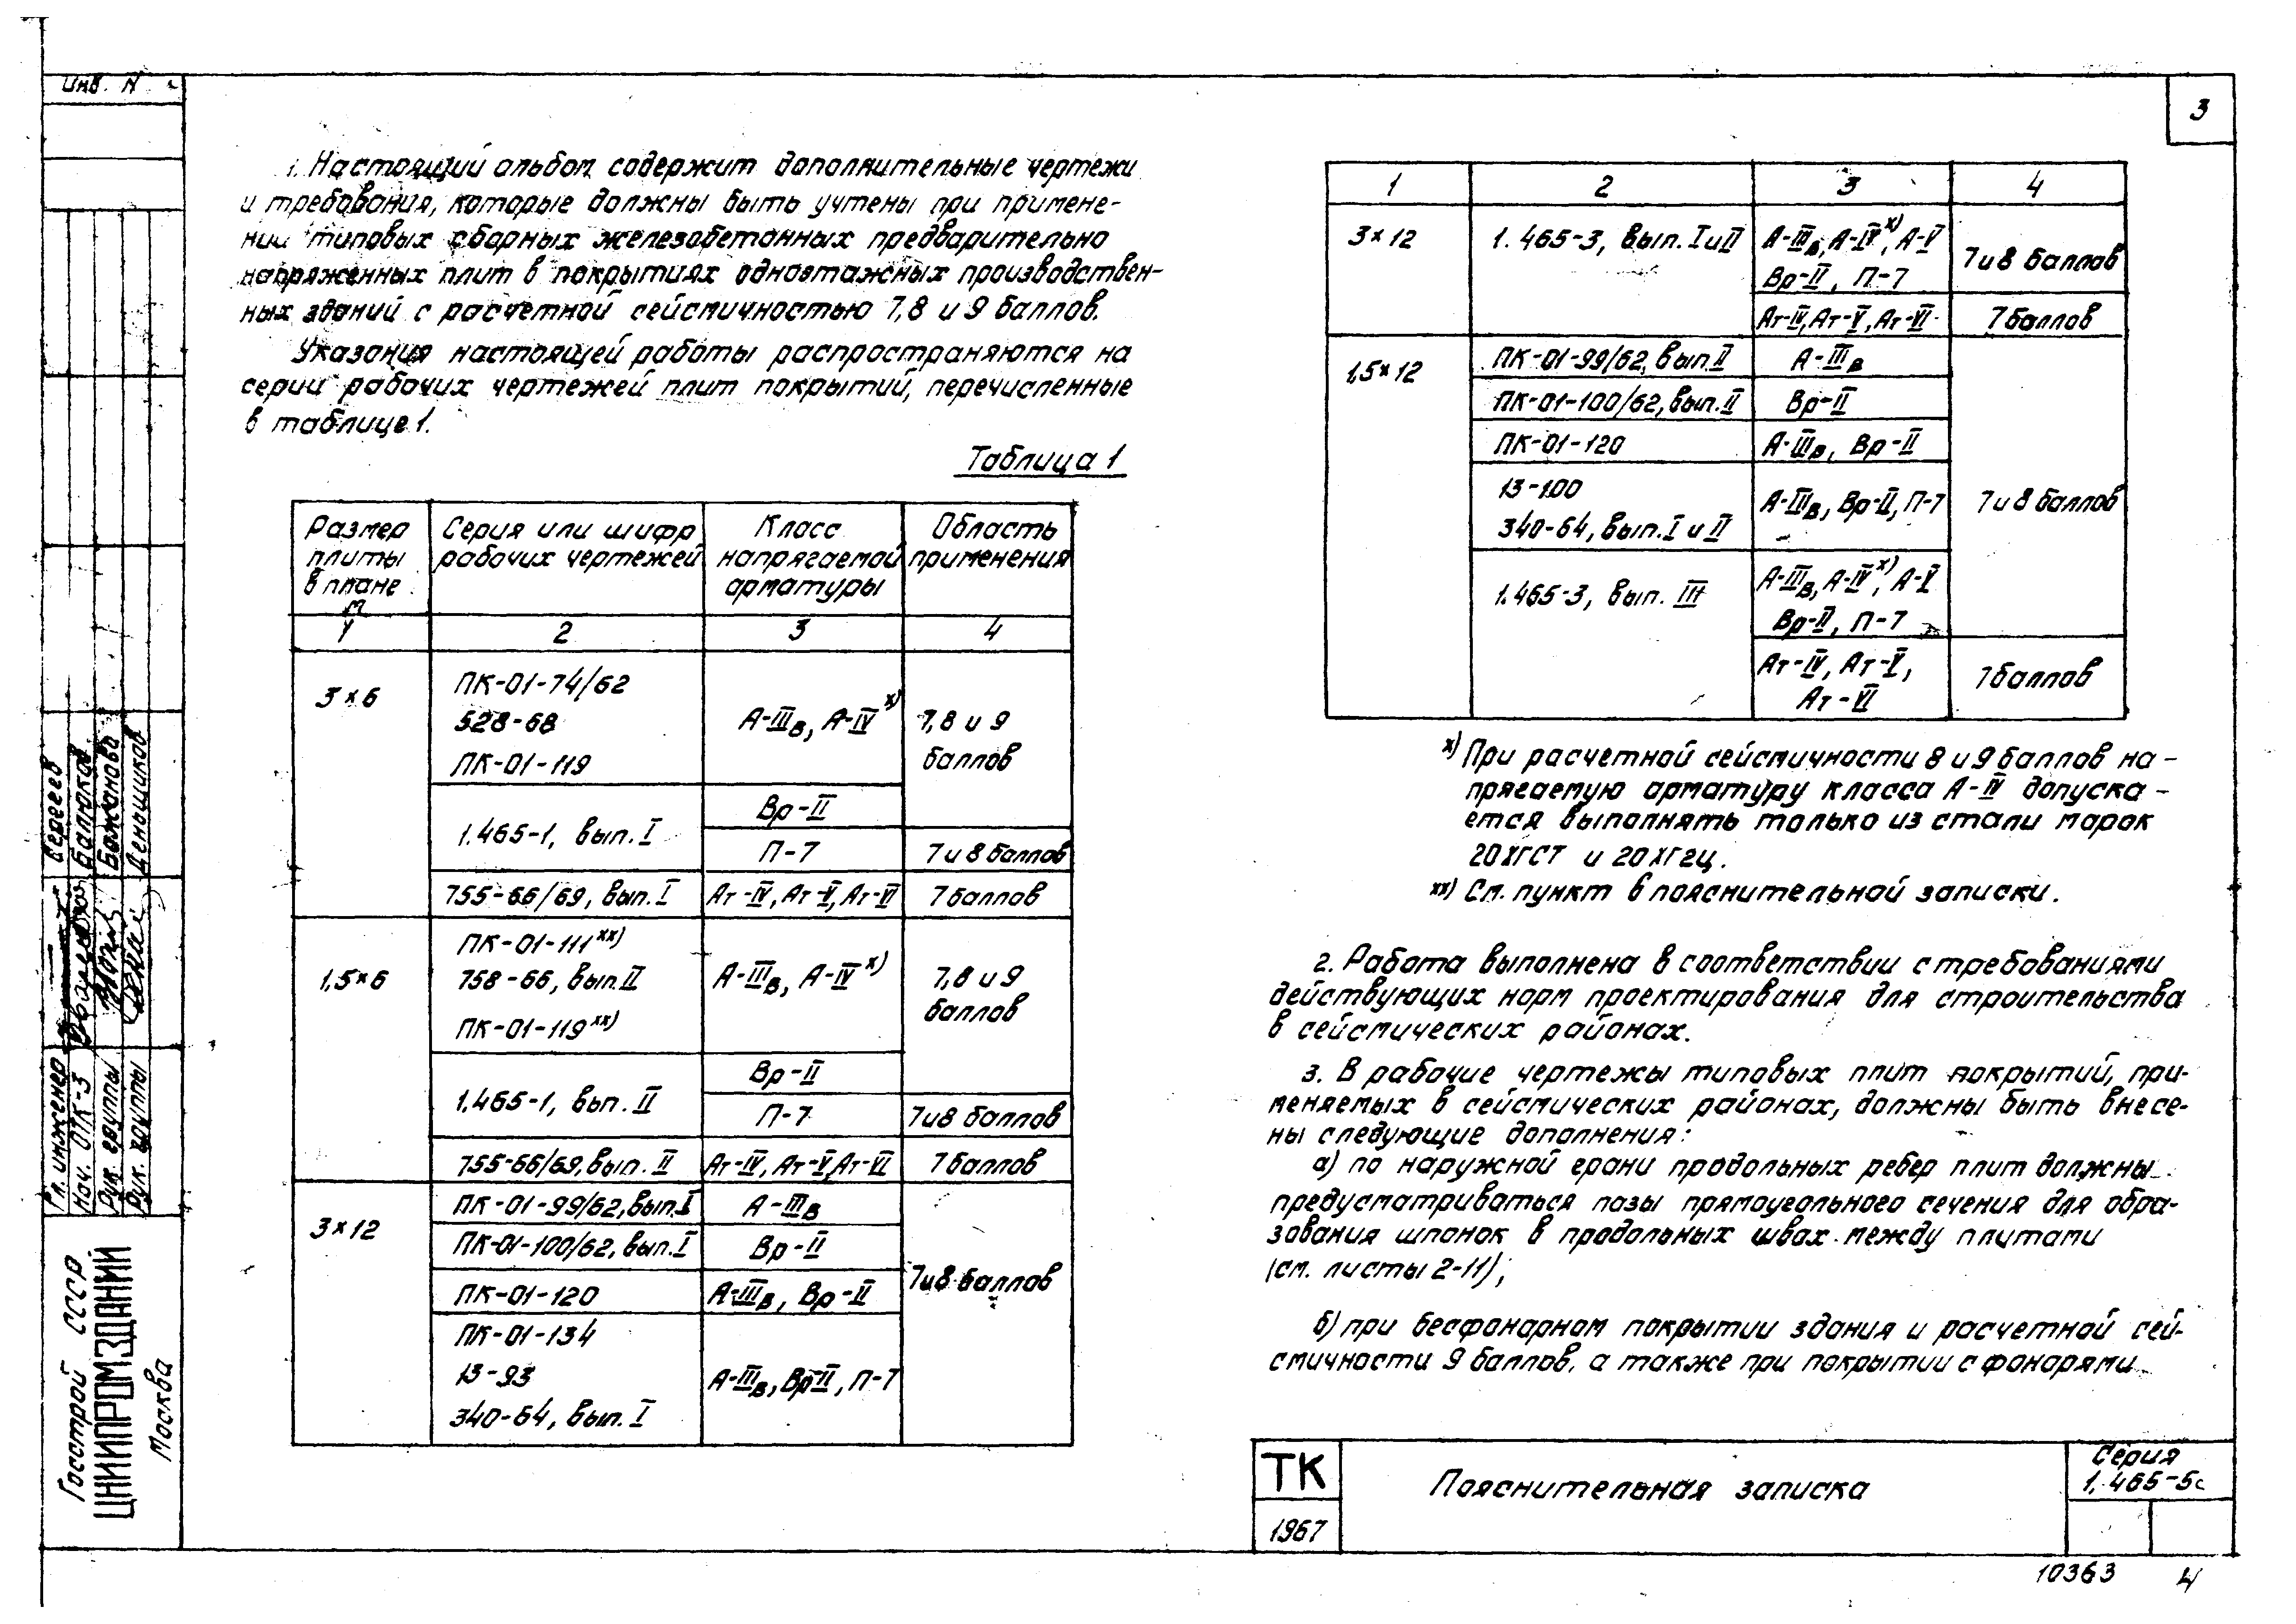 Инв. N
3
1. Настоящий альбом содержит дополнительные чертежи
и требования, которые должны быть учтены при примене-
нии типовых сборных железобетонных предварительно
напряженных плит в покрытиях одноэтажных производствен-
ных зданий с расчетной сейсмичностью 7,8 и 9 баллов.
Указания настоящей работы распространяются на
серии рабочих чертежей плит покрытий, перечисленные
в таблице 1.
Таблица 1
Размер плиты в плане м | Серия или шифр рабочих чертежей | Класс напрягаемой арматуры | Область применения
1 2 3 4
3×6
ПК-01-74/62
528-68
ПК-01-119
А-IIIв, А-IV х)
7,8 и 9
баллов
1.465-1, вып. I
Вр-II
П-7 7 и 8 баллов
755-66/69, вып. I Ат-IV, Ат-V, Ат-VI 7 баллов
1,5×6
ПК-01-111 хх)
758-66, вып. II
ПК-01-119 хх)
А-IIIв, А-IV х)
7,8 и 9
баллов
1.465-1, вып. II
Вр-II
П-7 7и8 баллов
755-66/69, вып. II Ат-IV, Ат-V, Ат-VI 7 баллов
3×12
ПК-01-99/62, вып. I А-IIIв
ПК-01-100/62, вып. I Вр-II
ПК-01-120 А-IIIв, Вр-II
7и8 баллов
ПК-01-134
13-93
340-64, вып. I
А-IIIв, Вр-II, П-7
1 2 3 4
3×12 1.465-3, вып. I и II А-IIIв, А-IV х), А-V
Вр-II, П-7
7 и 8 баллов
Ат-IV, Ат-V, Ат-VI 7 баллов
1,5×12
ПК-01-99/62, вып. II А-IIIв
ПК-01-100/62, вып. II Вр-II
ПК-01-120 А-IIIв, Вр-II
13-100
340-64, вып. I и II
А-IIIв, Вр-II, П-7
7 и 8 баллов
1.465-3, вып. III
А-IIIв, А-IV х), А-V
Вр-II, П-7
Ат-IV, Ат-V,
Ат-VI
7 баллов
х) При расчетной сейсмичности 8 и 9 баллов на-
прягаемую арматуру класса А-IV допуска-
ется выполнять только из стали марок
20ХГСТ и 20ХГ2Ц.
хх) См. пункт 6 пояснительной записки.
2. Работа выполнена в соответствии с требованиями
действующих норм проектирования для строительства
в сейсмических районах.
3. В рабочие чертежы типовых плит покрытий, при-
меняемых в сейсмических районах, должны быть внесе-
ны следующие дополнения:
а) по наружной грани продольных ребер плит должны
предусматриваться пазы прямоугольного сечения для обра-
зования шпонок в продольных швах между плитами
(см. листы 2-11);
б) при бесфонарном покрытии здания и расчетной сей-
смичности 9 баллов, а также при покрытии с фонарями
Гл. инженер Сергеев
Нач. ОТК-3 Балюков
Рук. группы Бажанова
Рук. группы Деньщиков
Госстрой СССР
ЦНИИПРОМЗДАНИЙ
Москва
ТК
1967
Пояснительная записка
Серия
1.465-5с
10363 4